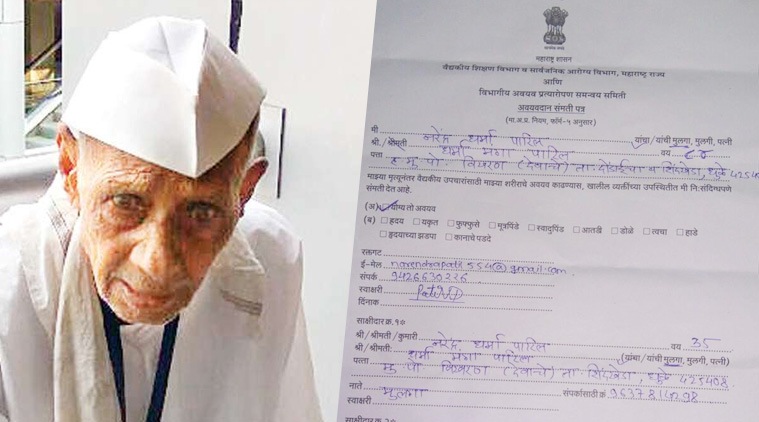 महाराष्ट्र शासन
वैद्यकीय शिक्षण विभाग व सार्वजनिक आरोग्य विभाग, महाराष्ट्र राज्य
आणि
विभागीय अवयव प्रत्यारोपण समन्वय समिती
अवयवदान संमती पत्र
(मा.अ.प्र. नियम, फॉर्म-५ अनुसार)
मी नरेंद्र धर्मा पाटिल
श्री./श्रीमती धर्मा मंगा पाटिल यांचा/यांची मुलगा, मुलगी, पत्नी
वय ८४
पत्ता मु पो विखरण (देवाचे) ता शिंदखेडा, धुळे
माझ्या मृत्यूनंतर वैद्यकीय उपचारांसाठी माझ्या शरीराचे अवयव काढण्यास, खालील व्यक्तींच्या उपस्थितीत मी नि:संदिग्धपणे
संमती देत आहे.
(अ) योग्य तो अवयव
(ब) हृदय यकृत फुफ्फुसे मूत्रपिंडे स्वादुपिंड आतडी डोळे त्वचा हाडे
हृदयाच्या झडपा कानाचे पडदे
रक्तगट
ई-मेल
संपर्क 9426630226
स्वाक्षरी
दिनांक
साक्षीदार क्र. १*
श्री/श्रीमती/कुमारी नरेंद्र धर्मा पाटिल वय 35
श्री/श्रीमती: धर्मा मंगा पाटिल (यांचा/यांची मुलगा, मुलगी, पत्नी)
पत्ता मु पो विखरण (देवाचे) ता शिंदखेडा, धुळे 425408.
नाते मुलगा संपर्कासाठी क्र
स्वाक्षरी
साक्षीदार क्र.